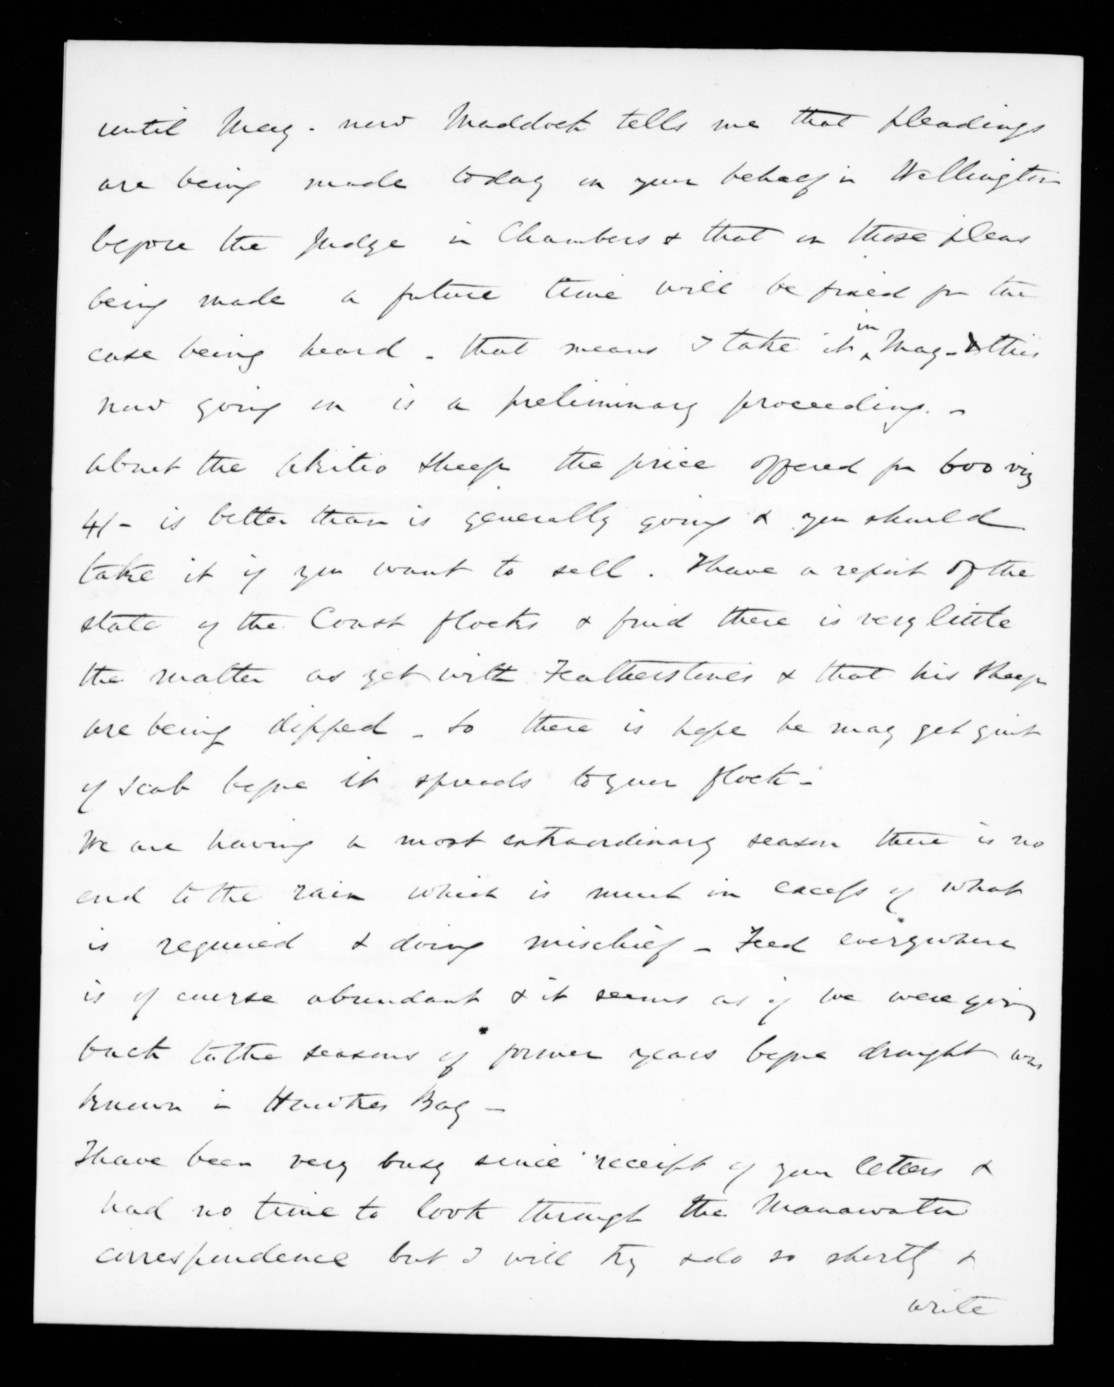 until May. now Maddock tells me that pleadings
are being made today on your behalf in Wellington
before the Judge in Chambers & that on those pleas
being made a future time will be fixed for the
case being heard - that means I take it in May - & this
now going on is a preliminary proceeding. -
About the Akitio sheep the price offered for 600 viz
4/- is better than is generally going & you should
take it if you want to sell. I have a report of the
state of the Coast flocks & find there is very little
the matter as yet with Featherstones & that his sheep
are being dipped - so there is hope he may get quit
of scab before it spreads to your flock -
We are having a most extraordinary season there is no
end to the rain which is much in excess of what
is required & doing mischief - Feed everywhere
is of course abundant & it seems as if we were going
back to the seasons of former years before drought was
known in Hawkes Bay -
I have been very busy since receipt of your letters &
had no time to look through the Manawatu
correspondence but I will try & do so shortly &
write